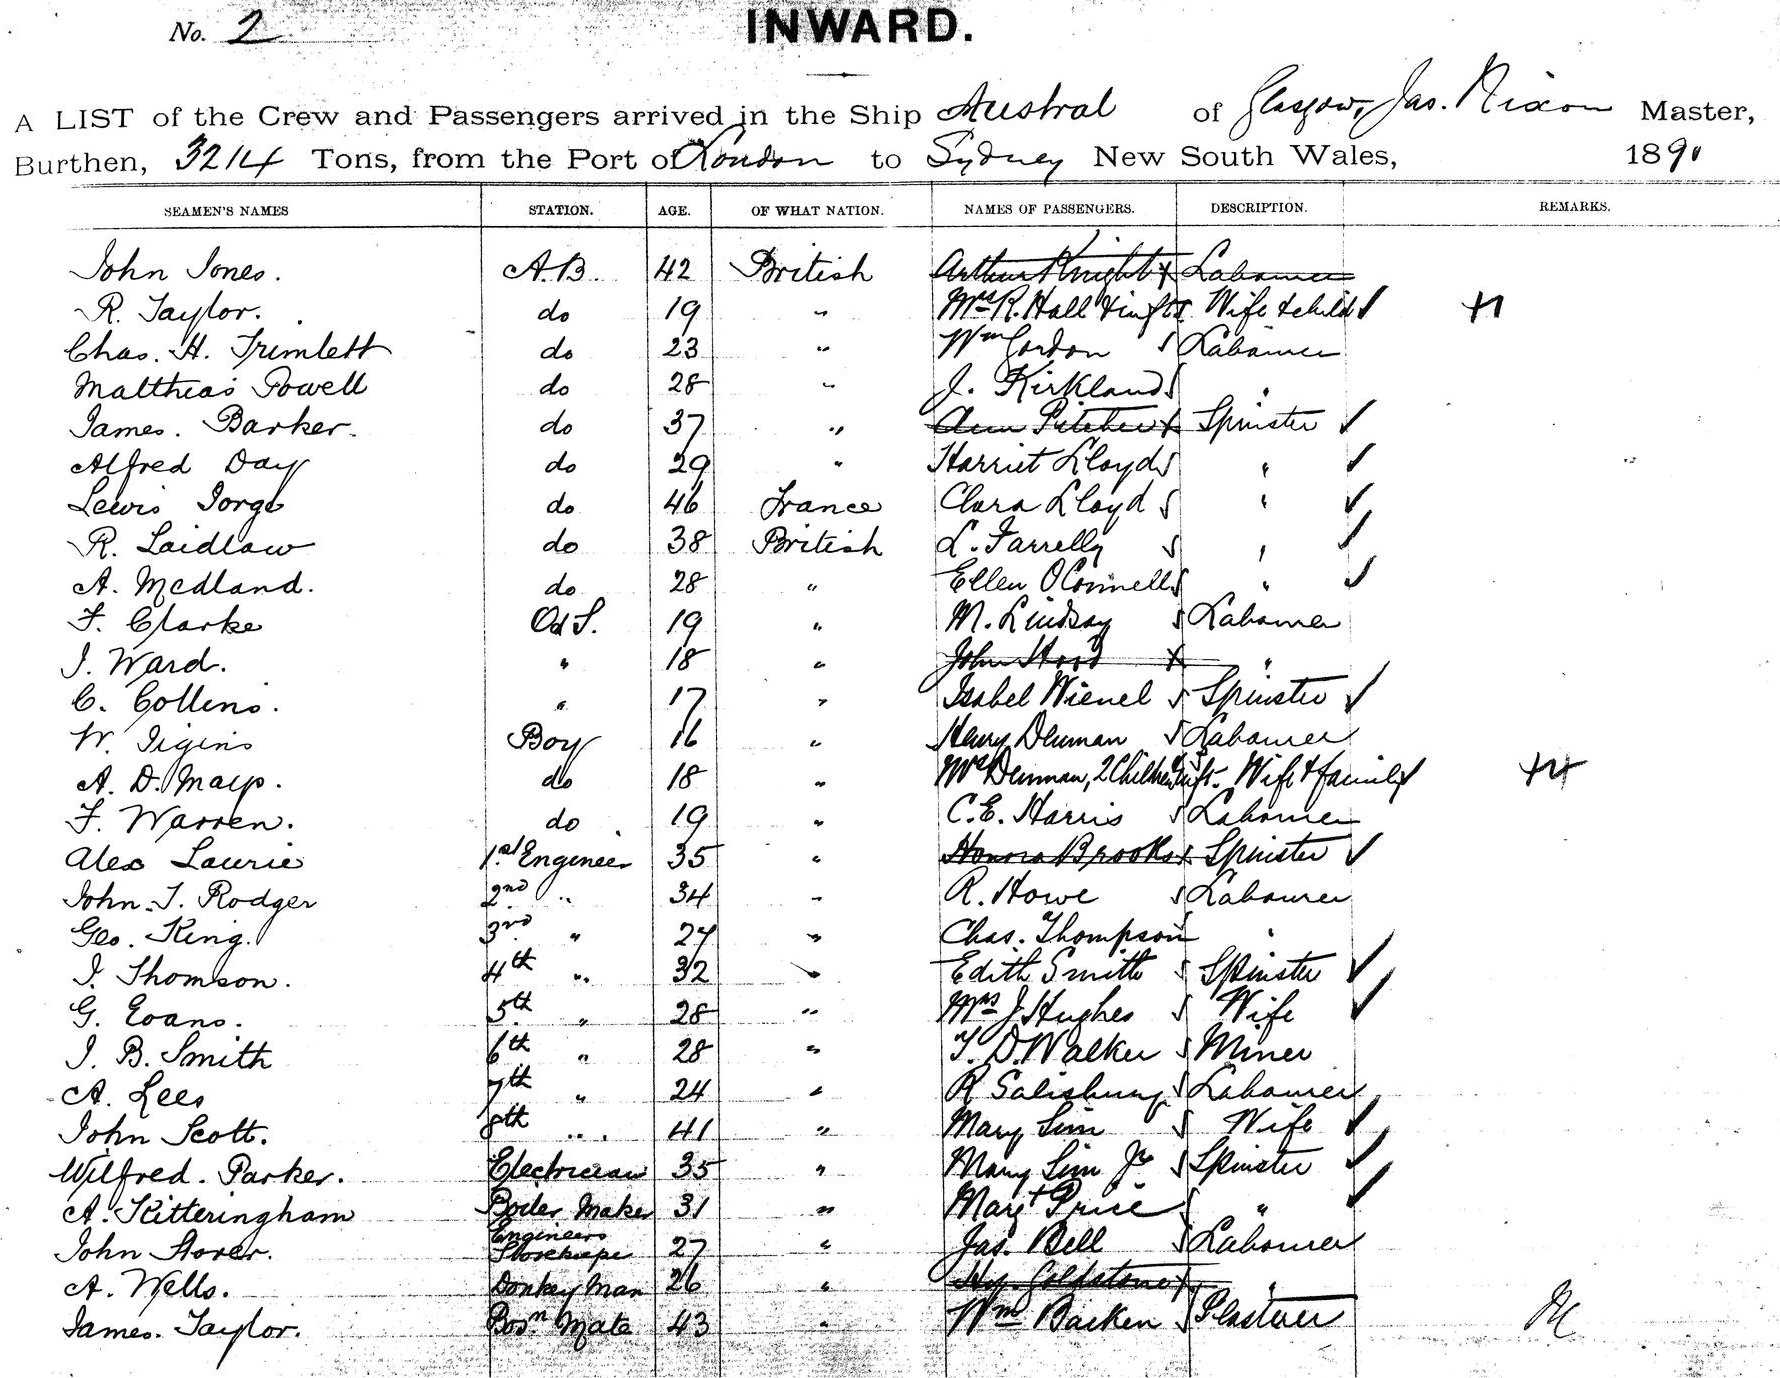 No. 2
INWARD.
A LIST of the Crew and Passengers arrived in the Ship Austral of Glasgow, Jas. Nixon Master,
Burthen, 3214 Tons, from the Port of London to Sydney New South Wales, 1891
SEAMEN'S NAMES STATION. AGE. OF WHAT NATION. NAMES OF PASSENGERS. DESCRIPTION. REMARKS.
John Jones. A.B. 42 British Arthur Knight x Labourer
R. Taylor. do 19 " Mrs R. Hall & inft Wife & child
Chas. H. Trimlett do 23 " Wm Gordon Labourer
Matthias Powell do 28 " J. Kirkland "
James. Barker. do 37 " Ann Pitcher x Spinster
Alfred Day do 29 " Harriet Lloyd "
Lewis do 46 France Clara Lloyd "
R. Laidlaw do 38 British L. Farrelly "
A. Medland. do 28 " Ellen OConnell "
F. Clarke Od S. 19 " M. Lindsay Labourer
J. Ward. " 18 " John Hood x "
C. Collins. " 17 " Isabel Wienel Spinster
W. Boy 16 " Henry Denman Labourer
A. D. do 18 " Mrs Denman, 2 Children & inft. Wife & family
F. Warren. do 19 " C.E. Harris Labourer
Alex Laurie 1st Engineer 35 " Honora Brooks x Spinster
John. T. Rodger 2nd " 34 " R. Howe Labourer
Geo. King. 3rd " 27 " Chas. Thompson "
J. Thomson. 4th " 32 " Edith Smith Spinster
G. Evans. 5th " 28 " Mrs J Hughes Wife
J. B. Smith 6th " 28 " T. D. Walker Miner
A. Lees 7th " 24 " R Salisbury Labourer
John Scott. 8th " 41 " Mary Sim Wife
Wilfred. Parker. Electrician 35 " Mary Sim Jr Spinster
A. Kitteringham Boiler Maker 31 " Margt Price "
John Storer. Engineers Storekeeper 27 " Jas. Bell Labourer
A. Wells. Donkey Man 26 " Hy. Goldstone x "
James. Taylor. Bosn Mate 43 " Wm Barken Plasterer